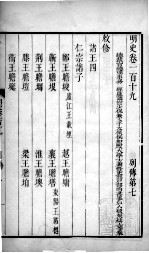 明史卷一百十九 列傳第七
敕修
諸王四
仁宗諸子
鄭王瞻埈 廬江王載堙 越王瞻墉
蘄王瞻垠 襄王瞻墡 棗陽王祐楒
荊王瞻堈 淮王瞻墺
滕王瞻塏 梁王瞻垍
衛王瞻埏